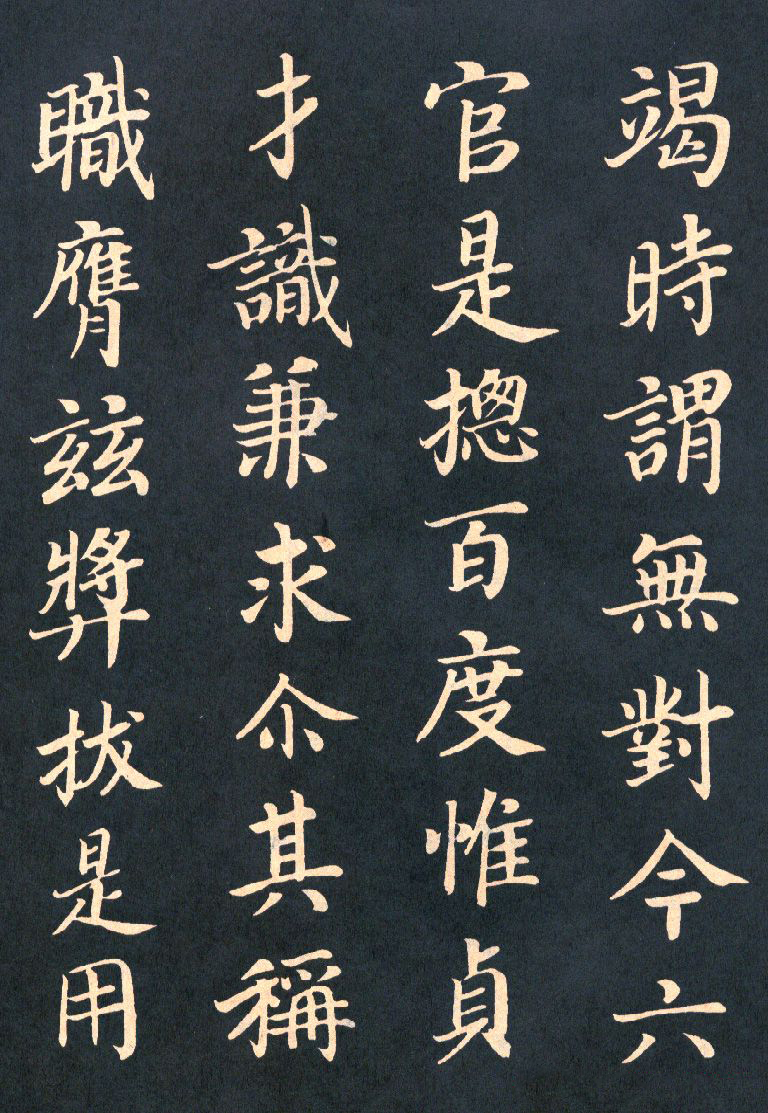 竭時謂無對今六
官是摠百度惟貞
才識兼求尒其稱
職膺茲奬拔是用